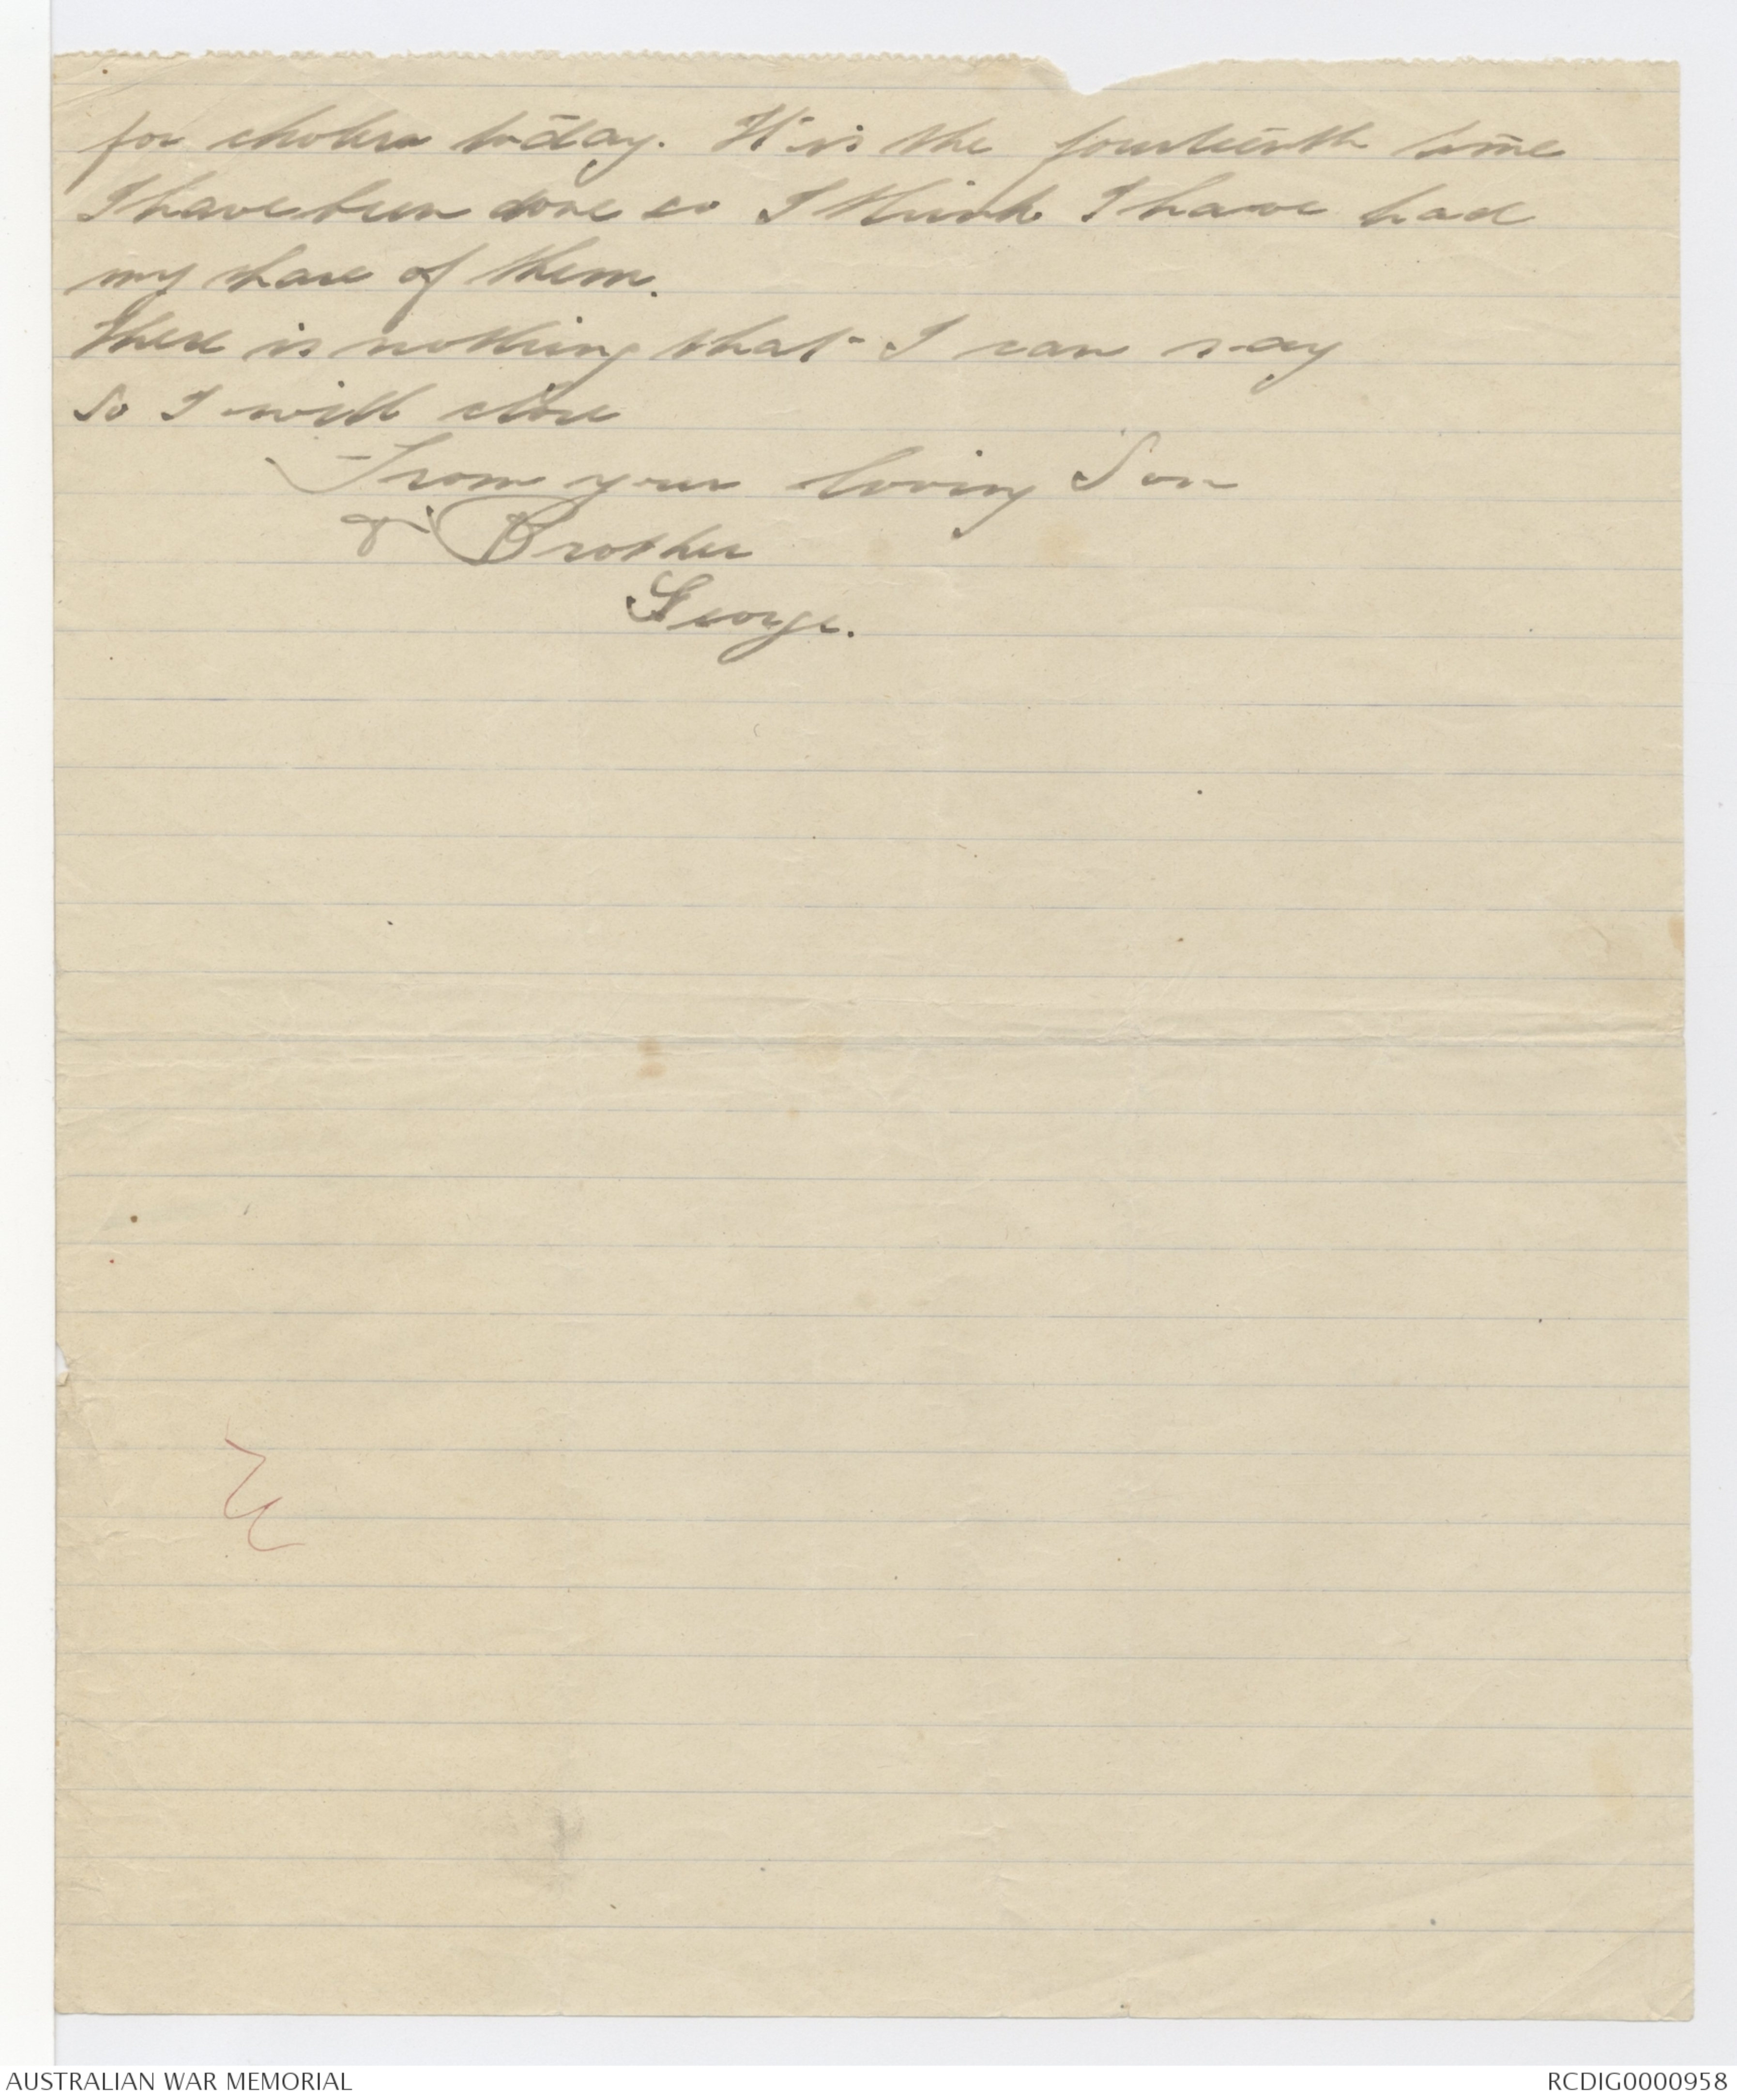 for cholera today. It is the fourteenth time
I have been done so I think I have had
my share of them.
There is nothing that I can say
so I will close
From your loving Son
& Brother
George.
AUSTRALIAN WAR MEMORIAL
RCDIG0000958